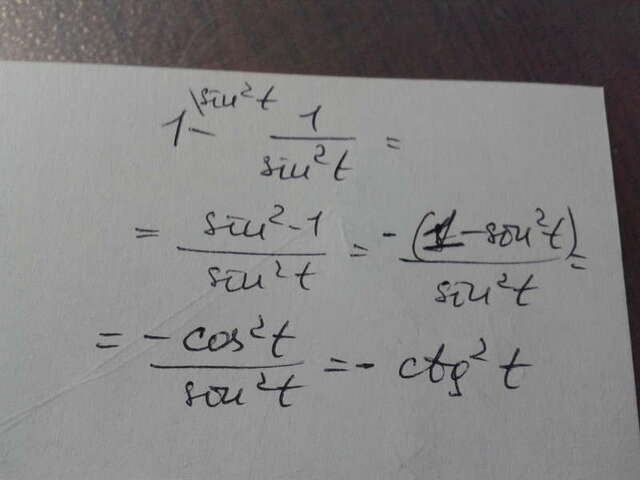 1\sin²t - 1/sin²t =
= (sin² - 1)/sin²t = -(1 - sin²t)/sin²t =
= -cos²t/sin²t = - ctg² t